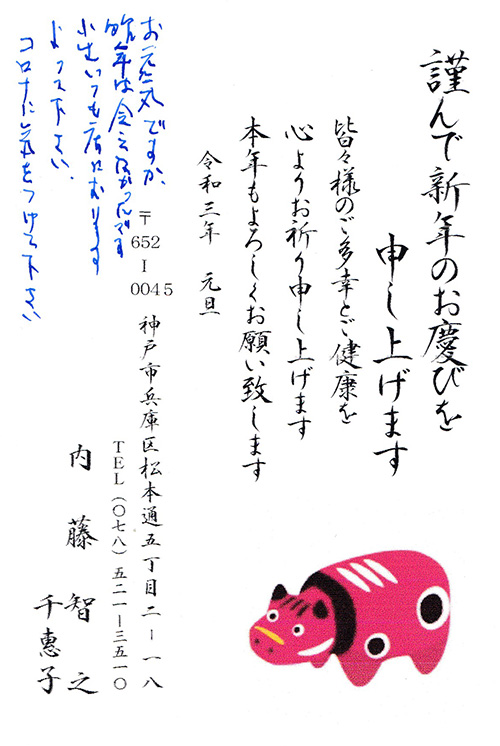 謹んで新年のお慶びを
申し上げます
皆々様のご多幸とご健康を
心よりお祈り申し上げます
本年もよろしくお願い致します
令和三年 元旦
〒652-0045
神戸市兵庫区松本通五丁目二-一八
TEL(〇七八)五二一-三五一〇
内藤智之
千惠子
お元気ですか、
昨年は会えなかったんです
小生いつも店におります
よって下さい.
コロナに気をつけて下さい